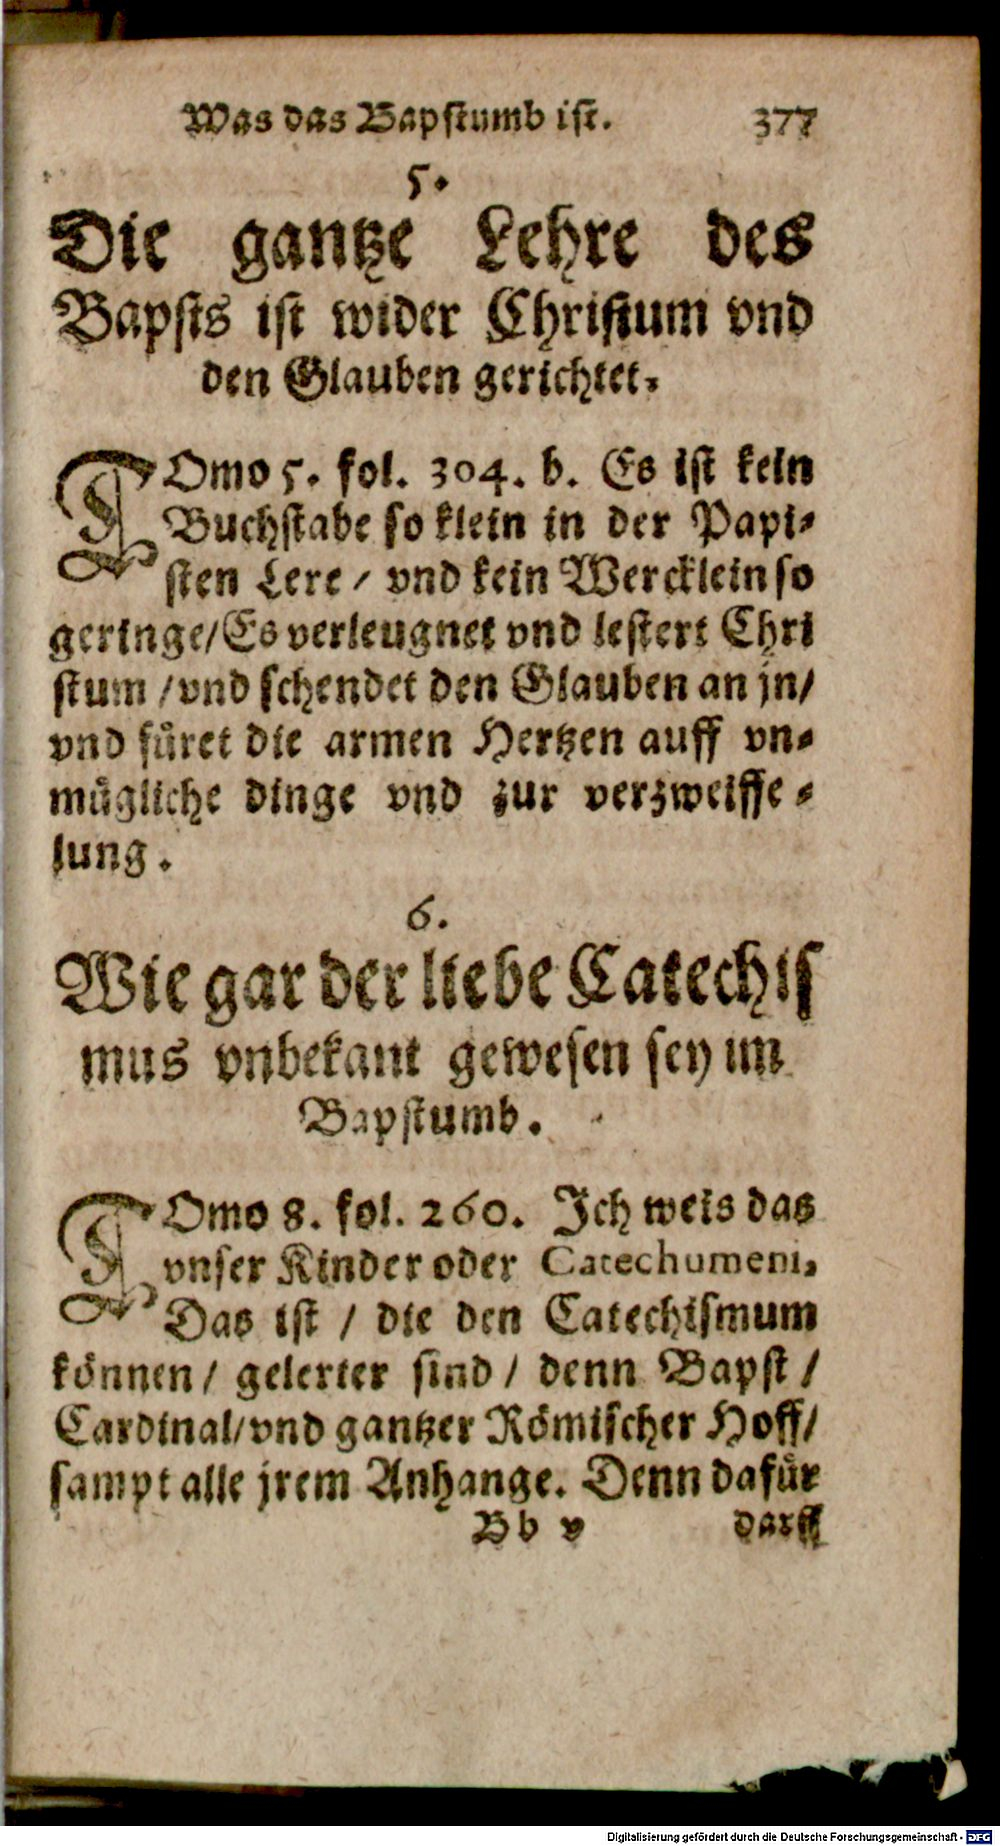 Was das Bapstumb ist. 377
5.
Die gantze Lehre des
Bapsts ist wider Christum vnd
den Glauben gerichtet.
TOmo 5. fol. 304. b. Es ist kein
Buchstabe so klein in der Papi-
sten Lere / vnd kein Wercklein so
geringe/Es verleugnet vnd lestert Chri
stum /vnd schendet den Glauben an jn/
vnd füret die armen Hertzen auff vn-
mügliche dinge vnd zur verzweiffe-
lung.
6.
Wie gar der liebe Catechis
mus vnbekant gewesen sey im
Bapstumb.
TOmo 8. fol. 260. Ich weis das
vnser Kinder oder Catechumeni,
Das ist / die den Catechismum
können / gelerter sind / denn Bapst /
Cardinal/vnd gantzer Römischer Hoff/
sampt alle jrem Anhange. Denn dafür
B b v darff
Digitalisierung gefördert durch die Deutsche Forschungsgemeinschaft - DFG